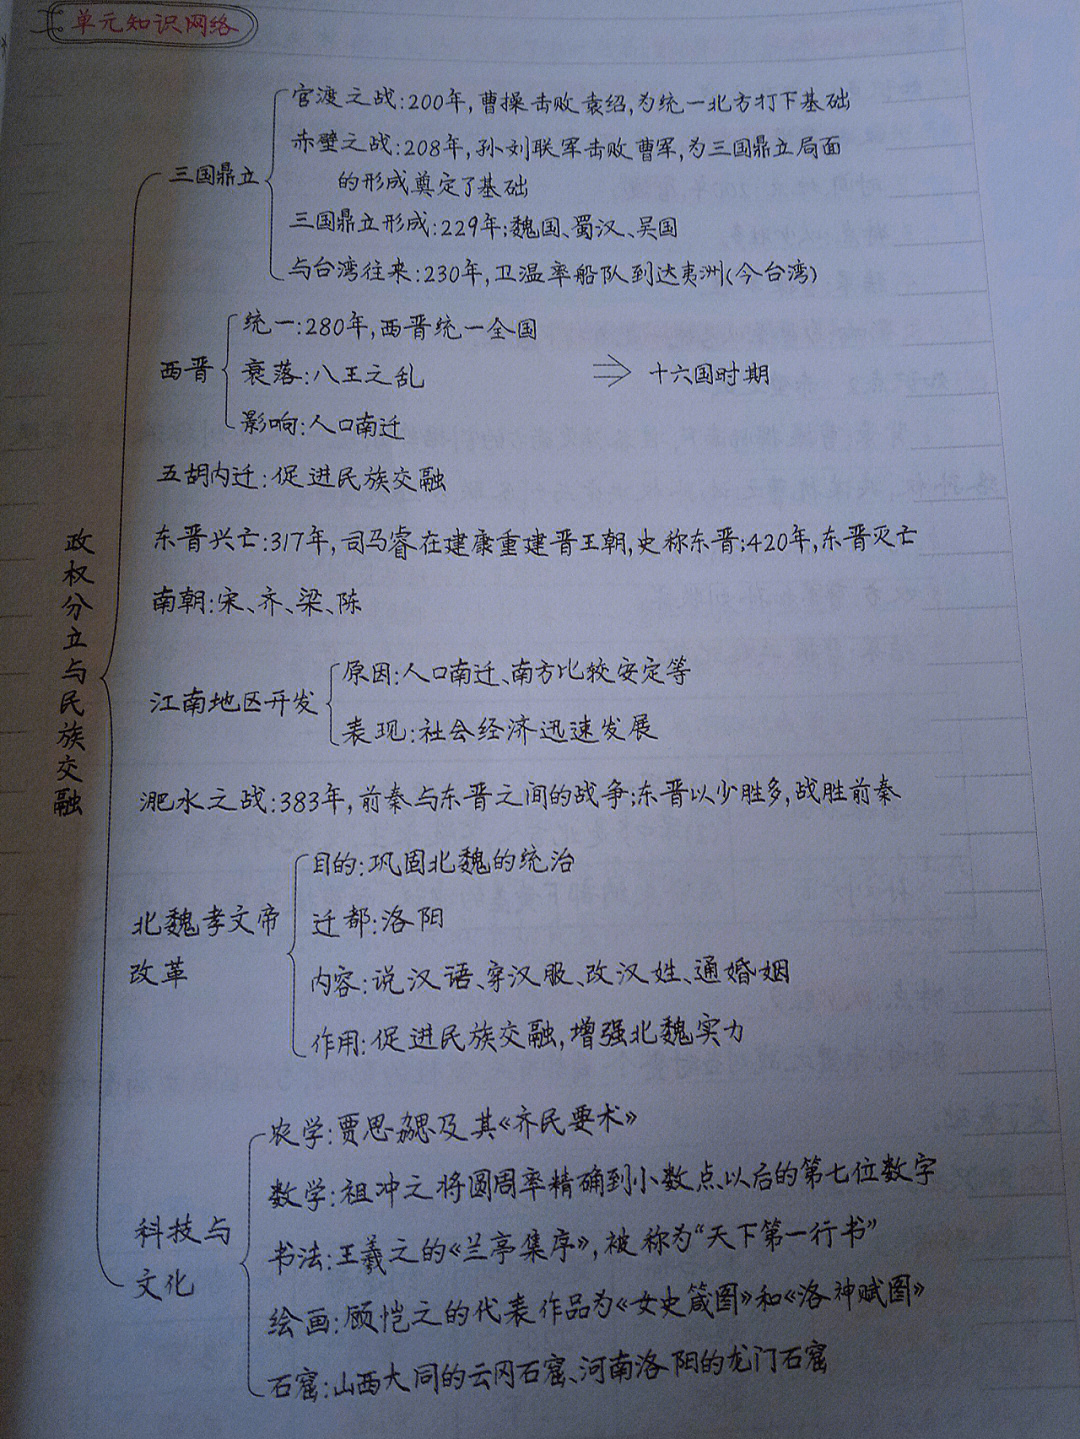 单元知识网络
官渡之战:200年,曹操击败袁绍,为统一北方打下基础
赤壁之战:208年,孙刘联军击败曹军,为三国鼎立局面
三国鼎立
的形成奠定了基础
三国鼎立形成:229年;魏国、蜀汉、吴国
与台湾往来:230年,卫温率船队到达夷洲(今台湾)
统一:280年,西晋统一全国
西晋
衰落:八王之乱
十六国时期
影响:人口南迁
五胡内迁:促进民族交融
政权分立与民族交融
东晋兴亡:317年,司马睿在建康重建晋王朝,史称东晋;420年,东晋灭亡
南朝:宋、齐、梁、陈
江南地区开发
原因:人口南迁、南方比较安定等
表现:社会经济迅速发展
淝水之战:383年,前秦与东晋之间的战争;东晋以少胜多,战胜前秦
北魏孝文帝
改革
目的:巩固北魏的统治
迁都:洛阳
内容:说汉语、穿汉服、改汉姓、通婚姻
作用:促进民族交融,增强北魏实力
科技与
文化
农学:贾思勰及其《齐民要术》
数学:祖冲之将圆周率精确到小数点以后的第七位数字
书法:王羲之的《兰亭集序》,被称为“天下第一行书”
绘画:顾恺之的代表作品为《女史箴图》和《洛神赋图》
石窟:山西大同的云冈石窟、河南洛阳的龙门石窟